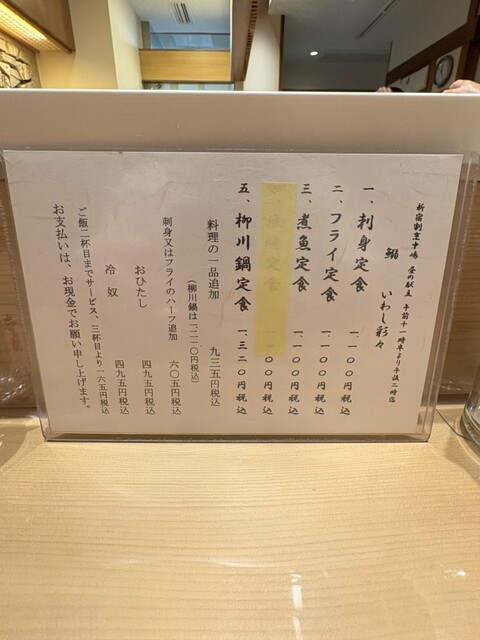 新宿割烹中嶋 昼の献立 午前十一時半より午後二時迄
鰯 いわし彩々
一、刺身定食 一、一〇〇円税込
二、フライ定食 一、一〇〇円税込
三、煮魚定食 一、一〇〇円税込
定食 一、一〇〇円税込
五、柳川鍋定食 一、三二〇円税込
料理の一品追加 九三五円税込
(柳川鍋は一二一〇円税込)
刺身又はフライのハーフ追加 六〇五円税込
おひたし 四九五円税込
冷奴 四九五円税込
ご飯二杯目までサービス、三杯目より一六五円税込
お支払いは、お現金でお願い申し上げます。